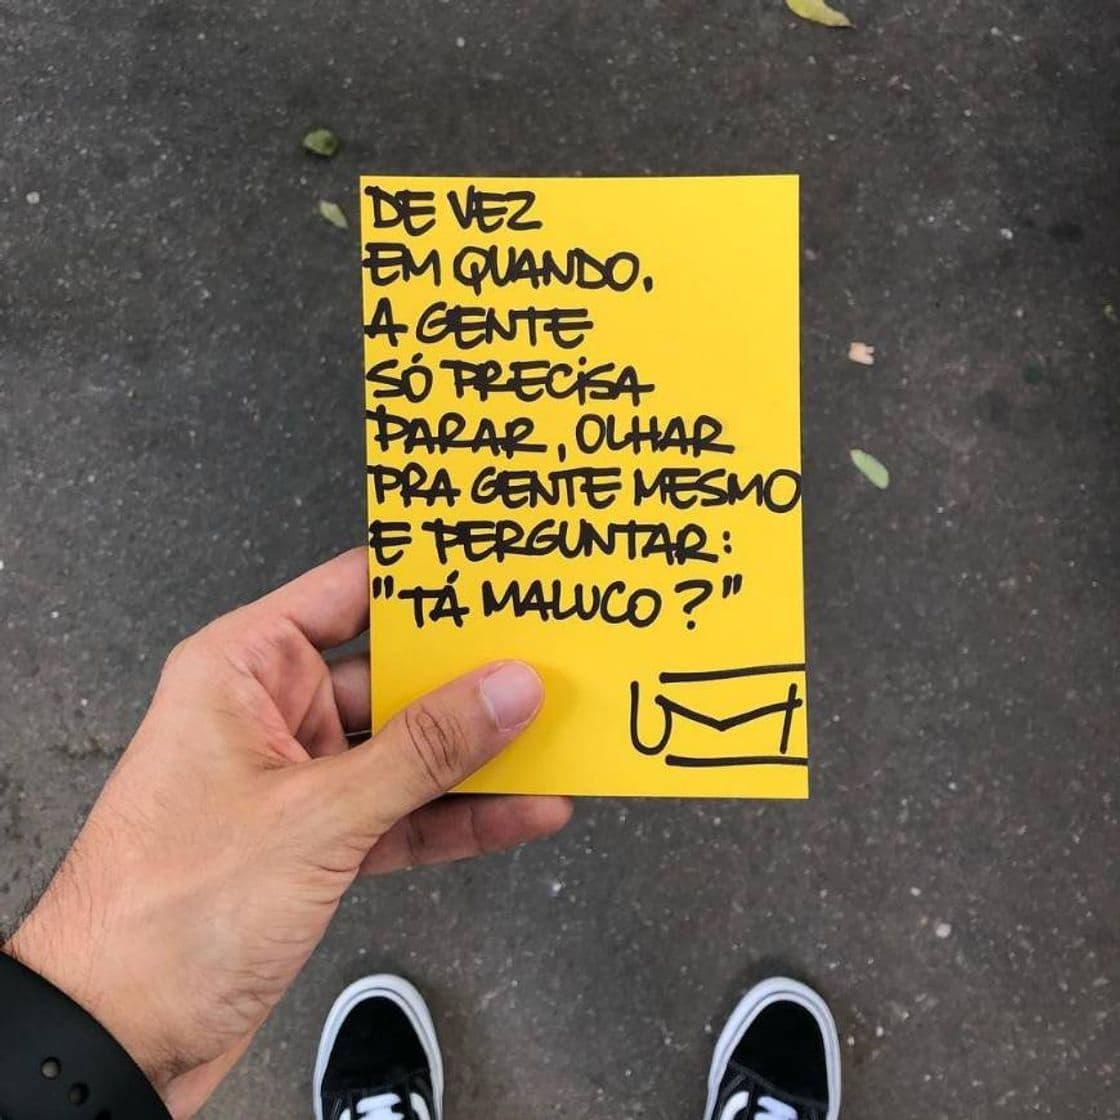 DE VEZ
EM QUANDO,
A GENTE
SÓ PRECISA
PARAR, OLHAR
PRA GENTE MESMO
E PERGUNTAR:
"TÁ MALUCO?"